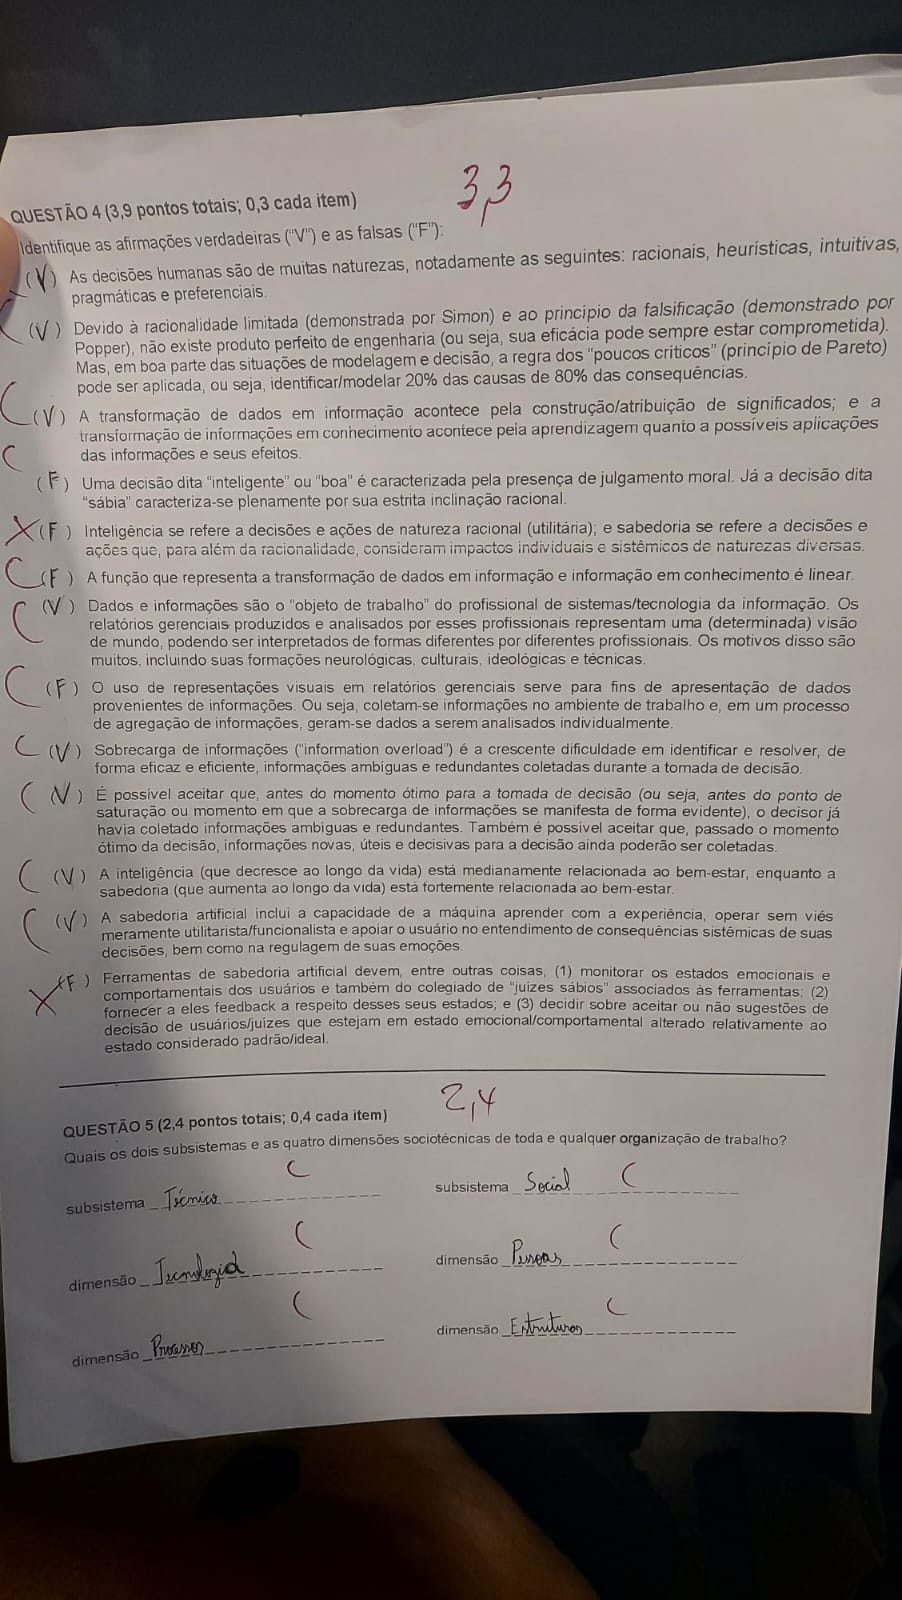 3,3
QUESTÃO 4 (3,9 pontos totais; 0,3 cada item)
Identifique as afirmações verdadeiras ("V") e as falsas ("F"):
(V) As decisões humanas são de muitas naturezas, notadamente as seguintes: racionais, heurísticas, intuitivas,
pragmáticas e preferenciais.
(V) Devido à racionalidade limitada (demonstrada por Simon) e ao princípio da falsificação (demonstrado por
Popper), não existe produto perfeito de engenharia (ou seja, sua eficácia pode sempre estar comprometida).
Mas, em boa parte das situações de modelagem e decisão, a regra dos "poucos críticos" (princípio de Pareto)
pode ser aplicada, ou seja, identificar/modelar 20% das causas de 80% das consequências.
C (V) A transformação de dados em informação acontece pela construção/atribuição de significados; e a
transformação de informações em conhecimento acontece pela aprendizagem quanto a possíveis aplicações
C das informações e seus efeitos.
(F) Uma decisão dita "inteligente" ou "boa" é caracterizada pela presença de julgamento moral. Já a decisão dita
"sábia" caracteriza-se plenamente por sua estrita inclinação racional.
X (F) Inteligência se refere a decisões e ações de natureza racional (utilitária); e sabedoria se refere a decisões e
ações que, para além da racionalidade, consideram impactos individuais e sistêmicos de naturezas diversas.
C (F) A função que representa a transformação de dados em informação e informação em conhecimento é linear.
C (V) Dados e informações são o "objeto de trabalho" do profissional de sistemas/tecnologia da informação. Os
relatórios gerenciais produzidos e analisados por esses profissionais representam uma (determinada) visão
de mundo, podendo ser interpretados de formas diferentes por diferentes profissionais. Os motivos disso são
muitos, incluindo suas formações neurológicas, culturais, ideológicas e técnicas.
C (F) O uso de representações visuais em relatórios gerenciais serve para fins de apresentação de dados
provenientes de informações. Ou seja, coletam-se informações no ambiente de trabalho e, em um processo
de agregação de informações, geram-se dados a serem analisados individualmente.
C (V) Sobrecarga de informações ("information overload") é a crescente dificuldade em identificar e resolver, de
forma eficaz e eficiente, informações ambíguas e redundantes coletadas durante a tomada de decisão.
C (V) É possível aceitar que, antes do momento ótimo para a tomada de decisão (ou seja, antes do ponto de
saturação ou momento em que a sobrecarga de informações se manifesta de forma evidente), o decisor já
havia coletado informações ambíguas e redundantes. Também é possível aceitar que, passado o momento
ótimo da decisão, informações novas, úteis e decisivas para a decisão ainda poderão ser coletadas.
C (V) A inteligência (que decresce ao longo da vida) está medianamente relacionada ao bem-estar, enquanto a
sabedoria (que aumenta ao longo da vida) está fortemente relacionada ao bem-estar.
C (V) A sabedoria artificial inclui a capacidade de a máquina aprender com a experiência, operar sem viés
meramente utilitarista/funcionalista e apoiar o usuário no entendimento de consequências sistêmicas de suas
decisões, bem como na regulagem de suas emoções.
X (F) Ferramentas de sabedoria artificial devem, entre outras coisas, (1) monitorar os estados emocionais e
comportamentais dos usuários e também do colegiado de "juízes sábios" associados às ferramentas; (2)
fornecer a eles feedback a respeito desses seus estados; e (3) decidir sobre aceitar ou não sugestões de
decisão de usuários/juízes que estejam em estado emocional/comportamental alterado relativamente ao
estado considerado padrão/ideal.
2,4
QUESTÃO 5 (2,4 pontos totais; 0,4 cada item)
Quais os dois subsistemas e as quatro dimensões sociotécnicas de toda e qualquer organização de trabalho?
subsistema Técnico C subsistema Social C
dimensão Tecnologia C dimensão Pessoas C
dimensão Processos C dimensão Estruturas C